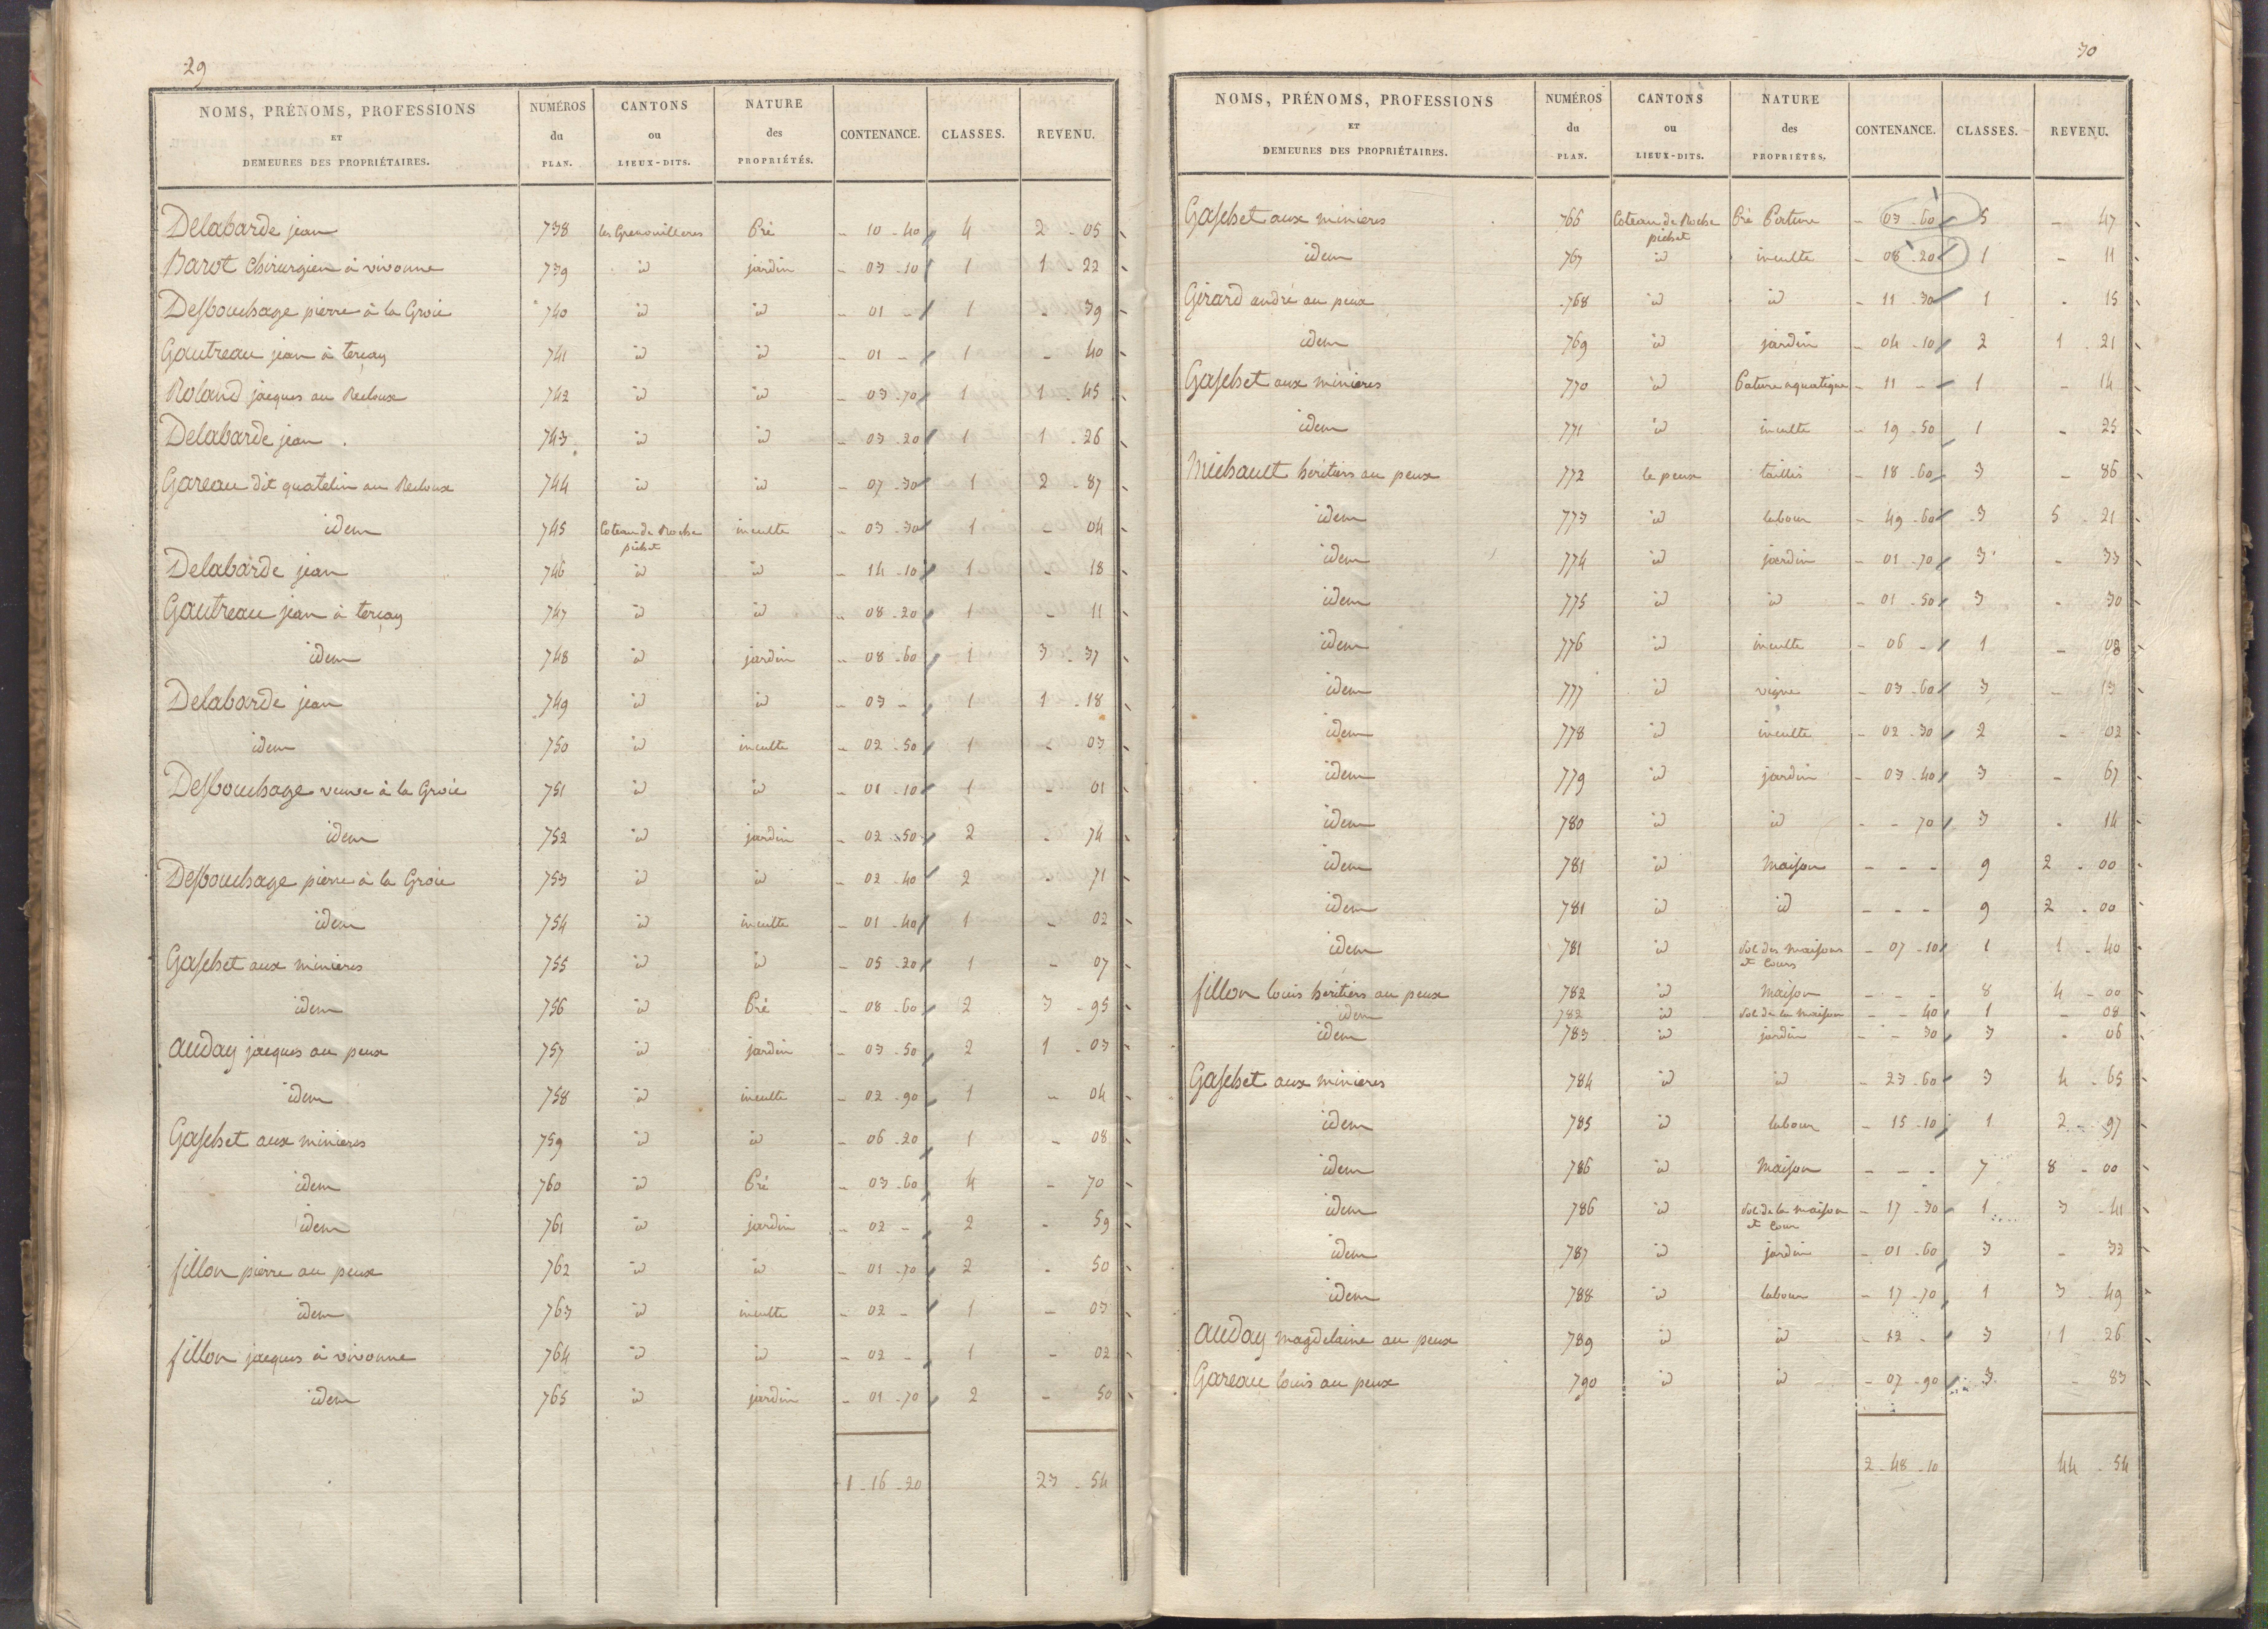 29
NOMS, PRÉNOMS, PROFESSIONS ET DEMEURES DES PROPRIÉTAIRES. NUMÉROS du PLAN. CANTONS ou LIEUX-DITS. NATURE des PROPRIÉTÉS. CONTENANCE. CLASSES. REVENU.
Delabarde jean 738 les Grenouilleres Pré - 10 - 40 4 2 - 05
Barot chirurgien à vivonne 739 id jardin - 03 - 10 1 1 - 22
Desbouchage pierre à la Groie 740 id id - 01 - 1 - 39
Gautreau jean à terçay 741 id id - 01 - 1 - 40
Roland jacques au Recloux 742 id id - 03 - 70 1 1 - 45
Delabarde jean 743 id id - 03 - 20 1 1 - 26
Gareau dit quatelin au Recloux 744 id id - 07 - 30 1 2 - 87
idem 745 Coteau de Roche pichet inculte - 03 - 30 1 - 04
Delabarde jean 746 id id - 14 - 10 1 - 18
Gautreau jean à terçay 747 id id - 08 - 20 1 - 11
idem 748 id jardin - 08 - 60 1 3 - 37
Delabarde jean 749 id id - 03 - 1 1 - 18
idem 750 id inculte - 02 - 50 1 - 03
Desbouchage veuve à la Groie 751 id id - 01 - 10 1 - 01
idem 752 id jardin - 02 - 50 2 - 74
Desbouchage pierre à la Groie 753 id id - 02 - 40 2 - 71
idem 754 id inculte - 01 - 40 1 - 02
Gaschet aux minieres 755 id id - 05 - 20 1 - 07
idem 756 id Pré - 08 - 60 2 3 - 95
auday jacques au peux 757 id jardin - 03 - 50 2 1 - 03
idem 758 id inculte - 02 - 90 1 - 04
Gaschet aux minieres 759 id id - 06 - 20 1 - 08
idem 760 id Pré - 03 - 60 4 - 70
idem 761 id jardin - 02 - 2 - 59
fillon pierre au peux 762 id id - 01 - 70 2 - 50
idem 763 id inculte - 02 - 1 - 03
fillon jacques à vivonne 764 id id - 02 - 1 - 02
idem 765 id jardin - 01 - 70 2 - 50
1 - 16 - 20 23 - 54
30
NOMS, PRÉNOMS, PROFESSIONS ET DEMEURES DES PROPRIÉTAIRES. NUMÉROS du PLAN. CANTONS ou LIEUX-DITS. NATURE des PROPRIÉTÉS. CONTENANCE. CLASSES. REVENU.
Gaschet aux minieres 766 Coteau de Roche pichet Pré Pature - 03 - 60 5 - 47
idem 767 id inculte - 08 - 20 1 - 11
Girard andré au peux 768 id id - 11 - 30 1 - 15
idem 769 id jardin - 04 - 10 2 1 - 21
Gaschet aux minieres 770 id Pature aquatique - 11 - 1 - 14
idem 771 id inculte - 19 - 50 1 - 25
Michault heritiers au peux 772 le peux taillis - 18 - 60 3 - 86
idem 773 id labour - 49 - 60 3 5 - 21
idem 774 id jardin - 01 - 70 3 - 33
idem 775 id id - 01 - 50 3 - 30
idem 776 id inculte - 06 - 1 - 08
idem 777 id vigne - 03 - 60 3 - 13
idem 778 id inculte - 02 - 30 2 - 02
idem 779 id jardin - 03 - 40 3 - 67
idem 780 id id - - 70 3 - 14
idem 781 id Maison - - - 9 2 - 00
idem 781 id id - - - 9 2 - 00
idem 781 id Sol des maisons et Cours - 07 - 10 1 1 - 40
fillon louis heritiers au peux 782 id Maison - - - 8 4 - 00
idem 782 id Sol de la maison - - 40 1 - 08
idem 783 id jardin - - 30 3 - 06
Gaschet aux minieres 784 id id - 23 - 60 3 4 - 65
idem 785 id labour - 15 - 10 1 2 - 97
idem 786 id Maison - - - 7 8 - 00
idem 786 id Sol de la maison et Cour - 17 - 30 1 3 - 41
idem 787 id jardin - 01 - 60 3 - 32
idem 788 id labour - 17 - 70 1 3 - 49
auday magdelaine au peux 789 id id - 12 - 3 1 - 26
Gareau louis au peux 790 id id - 07 - 90 3 - 83
2 - 48 - 10 44 - 54